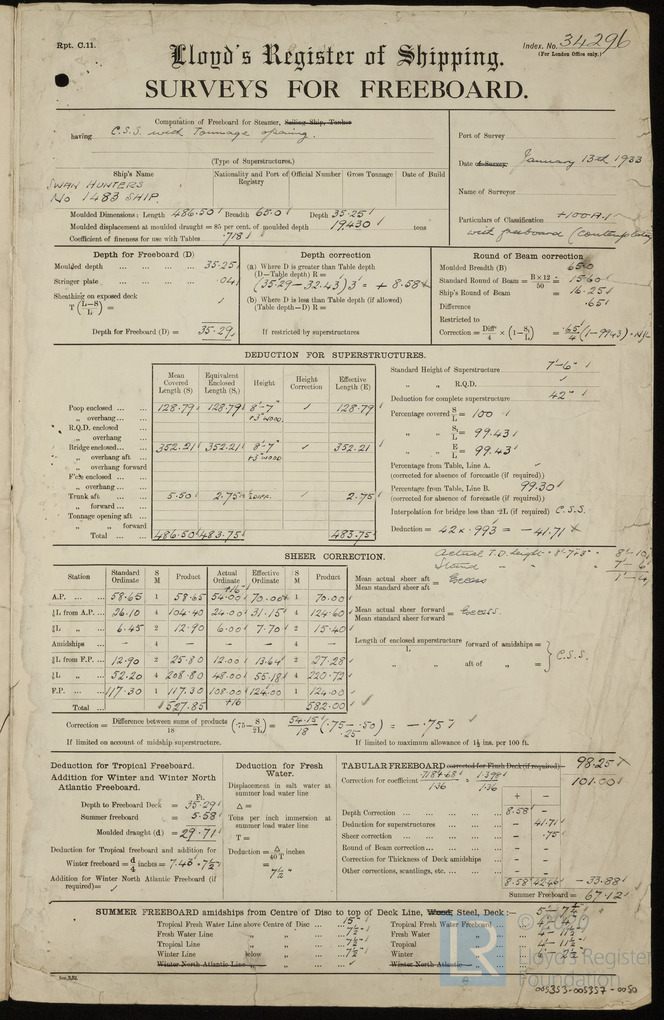 Rpt. C.11.
Index. No. 34296
(For London Office only.)
Lloyd's Register of Shipping.
SURVEYS FOR FREEBOARD.
Computation of Freeboard for Steamer, Sailing Ship, Tanker
having C.S.S. with Tonnage opening.
(Type of Superstructures.)
Port of Survey
Date of Survey January 13th 1933
Name of Surveyor
Particulars of Classification +100A.1
with freeboard (Contemplated)
Ship's Name
Nationality and Port of Registry
Official Number
Gross Tonnage
Date of Build
SWAN HUNTERS
No 1483 SHIP.
Moulded Dimensions: Length 486.50 Breadth 65.0 Depth 35.25
Moulded displacement at moulded draught = 85 per cent. of moulded depth 19430 tons
Coefficient of fineness for use with Tables .718
Depth for Freeboard (D)
Moulded depth ... 35.25
Stringer plate ... .04
Sheathing on exposed deck
T (L-S/L) =
Depth for Freeboard (D) = 35.29
Depth correction
(a) Where D is greater than Table depth
(D—Table depth) R =
(35.29 - 32.43) 3 = + 8.58
(b) Where D is less than Table depth (if allowed)
(Table depth—D) R =
If restricted by superstructures
Round of Beam correction
Moulded Breadth (B) 65.0
Standard Round of Beam = B×12/50 = 15.60
Ship's Round of Beam = 16.25
Difference .65
Restricted to
Correction = Diff/4 × (1-S/L) = .65/4 (1-.9943) = Nil
DEDUCTION FOR SUPERSTRUCTURES.
Mean Covered Length (S)
Equivalent Enclosed Length (S₁)
Height
Height Correction
Effective Length (E)
Poop enclosed ... 128.79 128.79 8'-7" ✓ 128.79
„ overhang... +3" WOOD
R.Q.D. enclosed
„ overhang
Bridge enclosed... 352.21 352.21 8'-7" ✓ 352.21
„ overhang aft ... +3" WOOD
„ overhang forward
F'cle enclosed ...
„ overhang ...
Trunk aft ... 5.50 2.75 2.75
„ forward ...
Tonnage opening aft ...
„ „ forward
Total ... 486.50 483.75 483.75
Standard Height of Superstructure 7'-6"
„ „ R.Q.D. ✓
Deduction for complete superstructure 42"
Percentage covered S/L = 100
„ „ S₁/L = 99.43
„ „ E/L = 99.43
Percentage from Table, Line A. ✓
(corrected for absence of forecastle (if required))
Percentage from Table, Line B. 99.30
(corrected for absence of forecastle (if required))
Interpolation for bridge less than ·2L (if required) C.S.S.
Deduction = 42 × .993 = - 41.71
SHEER CORRECTION.
Actual T.D. height = 8'-7"+3" = 8'-10"
Stand „ „ = 7'-6"
1'-4"
Station
Standard Ordinate
S M
Product
Actual Ordinate
Effective Ordinate
S M
Product
+16"
A.P. ... 58.65 1 58.65 54.00 70.00 1 70.00
⅙L from A.P. ... 26.10 4 104.40 24.00 31.15 4 124.60
⅓L „ ... 6.45 2 12.90 6.00 7.70 2 15.40
Amidships ... 4 — — — 4 —
⅓L from F.P. ... 12.90 2 25.80 12.00 13.64 2 27.28
⅙L „ ... 52.20 4 208.80 48.00 55.18 4 220.72
F.P. ... 117.30 1 117.30 108.00 124.00 1 124.00
Total ... 527.85 +16 582.00
Mean actual sheer aft / Mean standard sheer aft = Excess
Mean actual sheer forward / Mean standard sheer forward = Excess.
Length of enclosed superstructure / L forward of amidships =
„ „ aft of „ = } C.S.S.
Correction = Difference between sums of products / 18 (·75 - S/2L) = 54.15/18 (.75 - .50) = - .75
.25
If limited on account of midship superstructure.
If limited to maximum allowance of 1½ ins. per 100 ft.
Deduction for Tropical Freeboard.
Addition for Winter and Winter North Atlantic Freeboard.
Ft.
Depth to Freeboard Deck = 35.29
Summer freeboard = 5.58
Moulded draught (d) = 29.71
Deduction for Tropical freeboard and addition for
Winter freeboard = d/4 inches = 7.43 = 7½"
Addition for Winter North Atlantic Freeboard (if required) = ✓
Deduction for Fresh Water.
Displacement in salt water at summer load water line
Δ =
Tons per inch immersion at summer load water line
T =
Deduction = Δ/40 T inches
=
7½"
TABULAR FREEBOARD corrected for Flush Deck (if required) 98.25
Correction for coefficient .718+.68/1.36 = 1.398/1.36 101.00
+ −
Depth Correction ... 8.58 —
Deduction for superstructures ... — 41.71
Sheer correction ... — .75
Round of Beam correction ... — —
Correction for Thickness of Deck amidships ... — —
Other corrections, scantlings, etc. ... — —
8.58 42.46 - 33.88
Summer Freeboard = 67.12
SUMMER FREEBOARD amidships from Centre of Disc to top of Deck Line, Wood, Steel, Deck:— 5'-7½"
Tropical Fresh Water Line above Centre of Disc ... 15"
Fresh Water Line „ „ ... 7½"
Tropical Line „ „ ... 7½"
Winter Line below „ ... 7½"
Winter North Atlantic Line „ „ ✓
Tropical Fresh Water Freeboard
Fresh Water „
Tropical „ 4'-11½"
Winter „
Winter North Atlantic „
LR
© 2020
Lloyd's Register
Foundation
005353-005357-0050